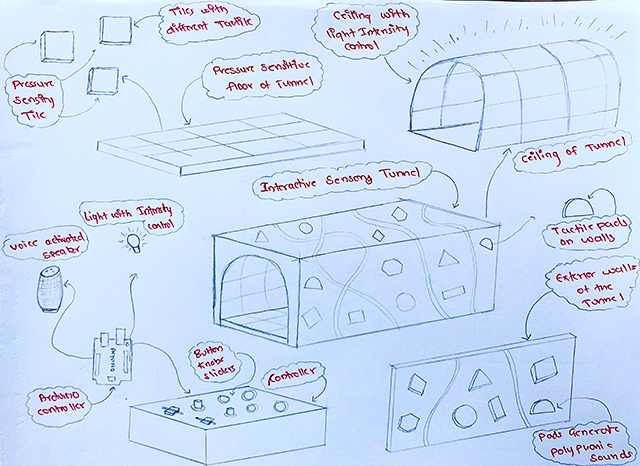 Tiles with
different Tactile
Pressure
Sensing
Tile
Pressure sensitive
floor of Tunnel
Ceiling with
light Intensity
control
Ceiling of Tunnel
Interactive Sensory Tunnel
Light with Intensity
control
Voice activated
speaker
Tactile pads
on walls
Exterior walls
of the
Tunnel
Button
knobs
sliders
Controller
Arduino
Arduino
controller
Pads Generate
Polyphonic
Sounds